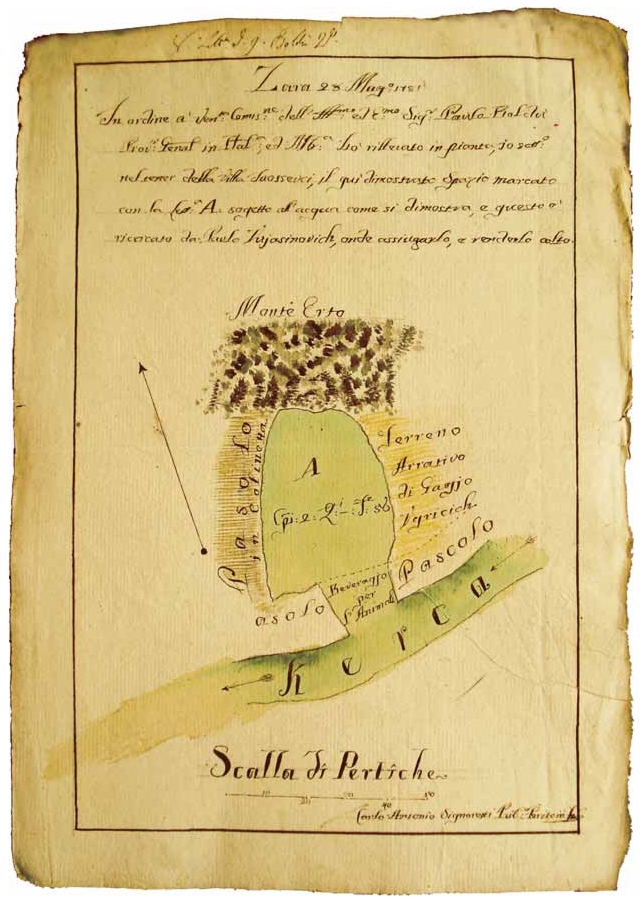 Zara 28 Mag.º 1781
In ordine a' Ven.ta Comis.ne dell' Ill.mo ed E.mo Sig.r Paulo Boldù
Prov.r Genal in Dal.a, ed Alb.a hò rillevato in pianta, io sott.º
nel tener della villa Suossevci, il qui dimostrato Spazio marcato
con la Lett.ª A. sogetto al acqua come si dimostra, e questo è
ricercato da Paulo Lujasinovich, onde assiugarlo, e renderlo colto.
Monte Erto
Pascolo
in Colineta
A
Terreno
Arrativo
di Gagjo
Vgricich
Pascolo
Beveraggio
per
l'Animali
asolo
Kerca
Scalla di Pertiche
10 20 30 40 50
Carlo Antonio Signoretti Pub.º